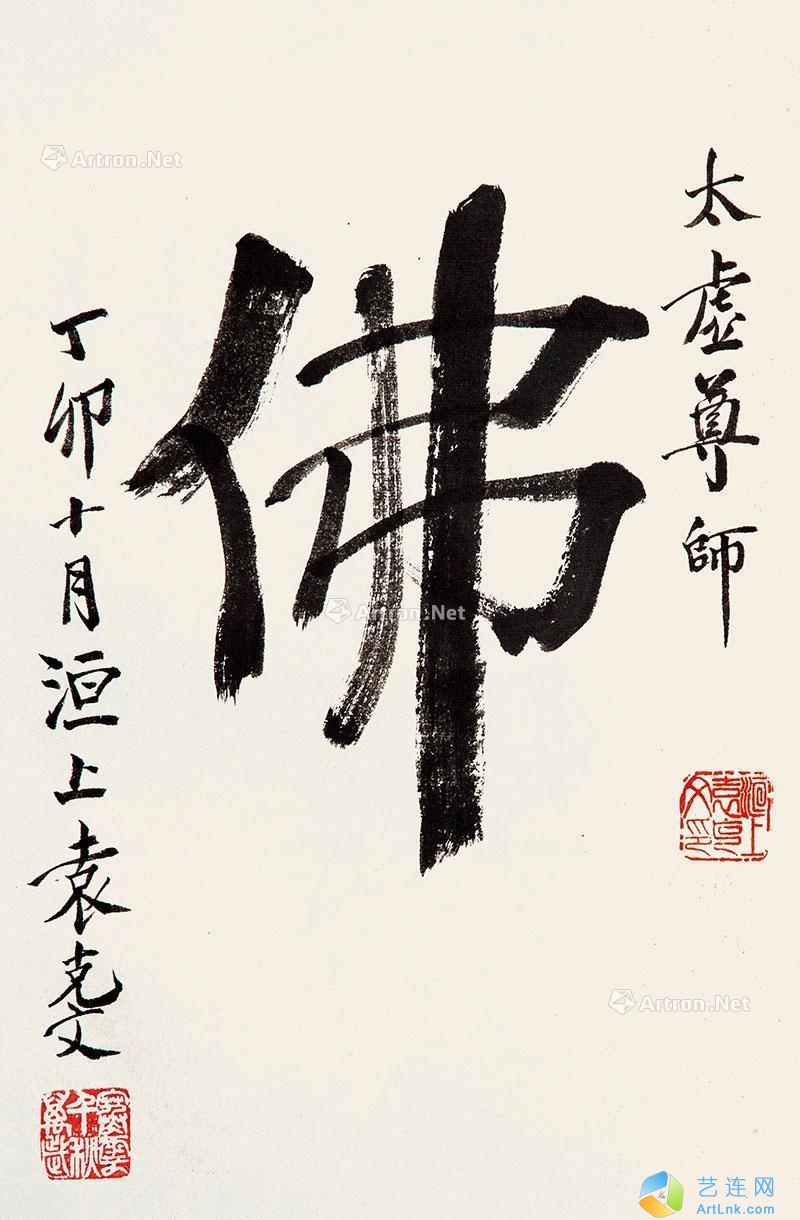 太虛尊師
佛
丁卯十月洹上袁克文
洹上袁克文印
Artron.Net
Artron.Net
Artron.Net
艺连网
ArtLnk.com